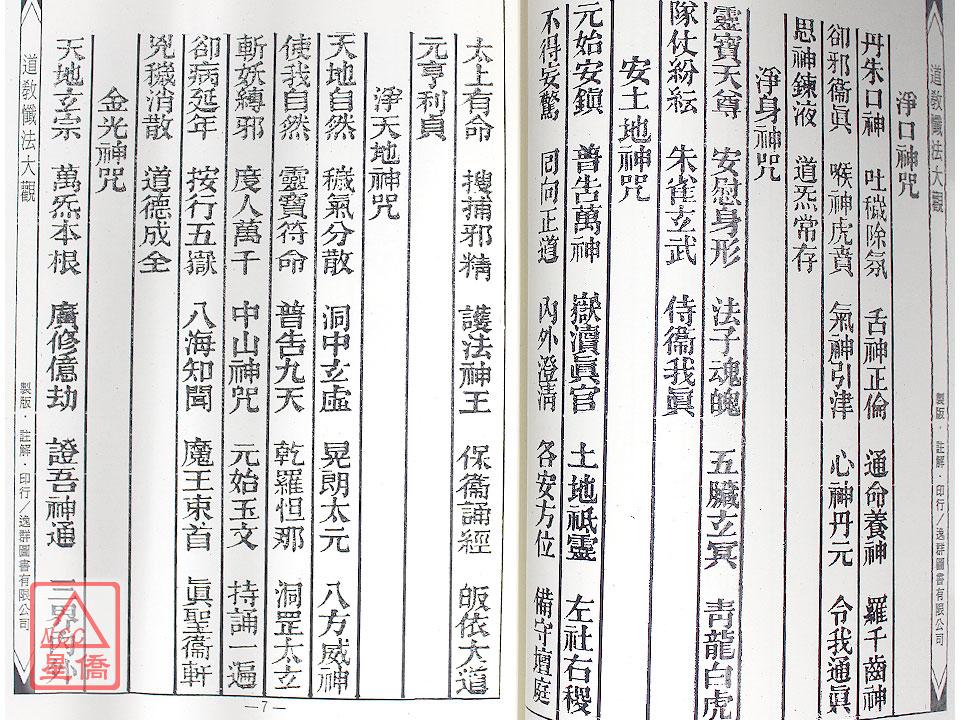 道教懺法大觀
製版．註解．印行／逸群圖書有限公司
淨口神咒
丹朱口神 吐穢除氛 舌神正倫 通命養神 羅千齒神
卻邪衞眞 喉神虎賁 氣神引津 心神丹元 令我通眞
思神鍊液 道炁常存
淨身神咒
靈寶天尊 安慰身形 法子魂魄 五臟玄冥 青龍白虎
隊仗紛紜 朱雀玄武 侍衞我眞
安土地神咒
元始安鎭 普告萬神 嶽瀆眞官 土地祇靈 左社右稷
不得妄驚 回向正道 內外澄淸 各安方位 備守壇庭
太上有命 搜捕邪精 護法神王 保衞誦經 皈依大道
元亨利貞
淨天地神咒
天地自然 穢氣分散 洞中玄虛 晃朗太元 八方威神
使我自然 靈寶符命 普告九天 乾羅怛那 洞罡太玄
斬妖縛邪 度人萬千 中山神咒 元始玉文 持誦一遍
卻病延年 按行五嶽 八海知聞 魔王束首 眞聖衞軒
兇穢消散 道德成全
金光神咒
天地玄宗 萬炁本根 廣修億劫 證吾神通 三界內外
道教懺法大觀
製版．註解．印行／逸群圖書有限公司
—7—
僑